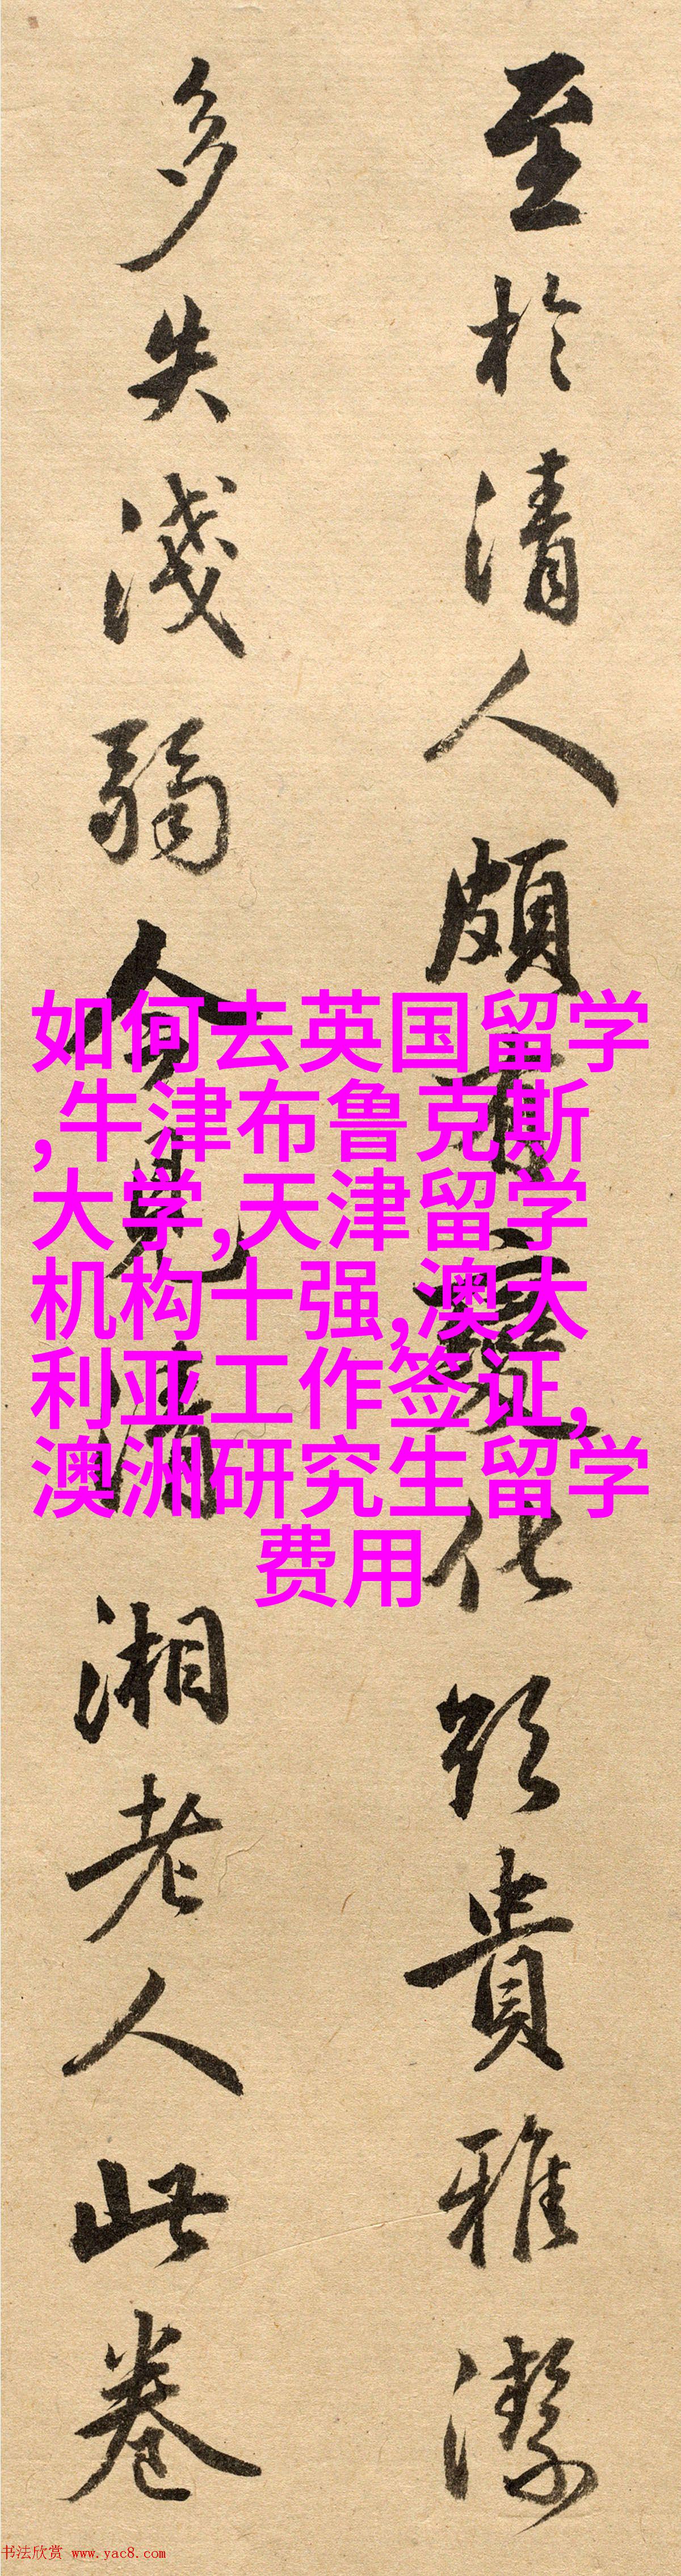 至於清人頗有變化於貴雅潔
多失淺弱今見清湘老人此卷
如何去英国留学
,牛津布鲁克斯
大学,天津留学
机构十强,澳大
利亚工作签证,
澳洲研究生留学
费用
书法欣赏 www.yac8.com